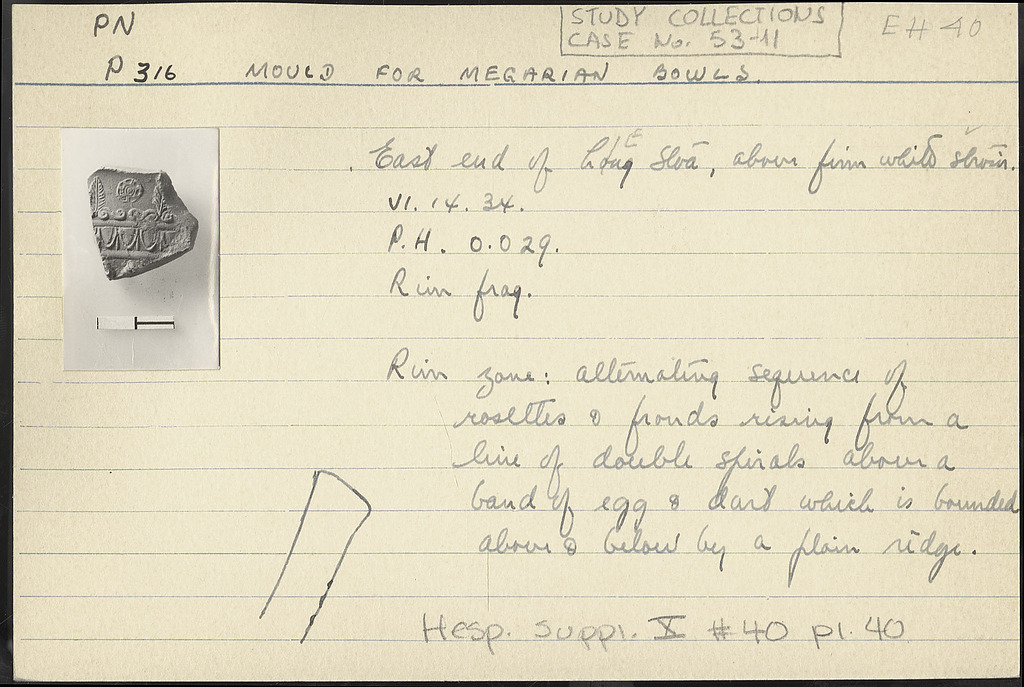 PN
STUDY COLLECTIONS
CASE No. 53-11
EH 40
P 316 MOULD FOR MEGARIAN BOWLS.
East end of Long Stoa, above firm white strosis.
VI. 14. 34.
P.H. 0.029.
Rim frag.
Rim zone: alternating sequence of
rosettes & fronds rising from a
line of double spirals above a
band of egg & dart which is bounded
above & below by a plain ridge.
Hesp. Suppl. X #40 pl. 40